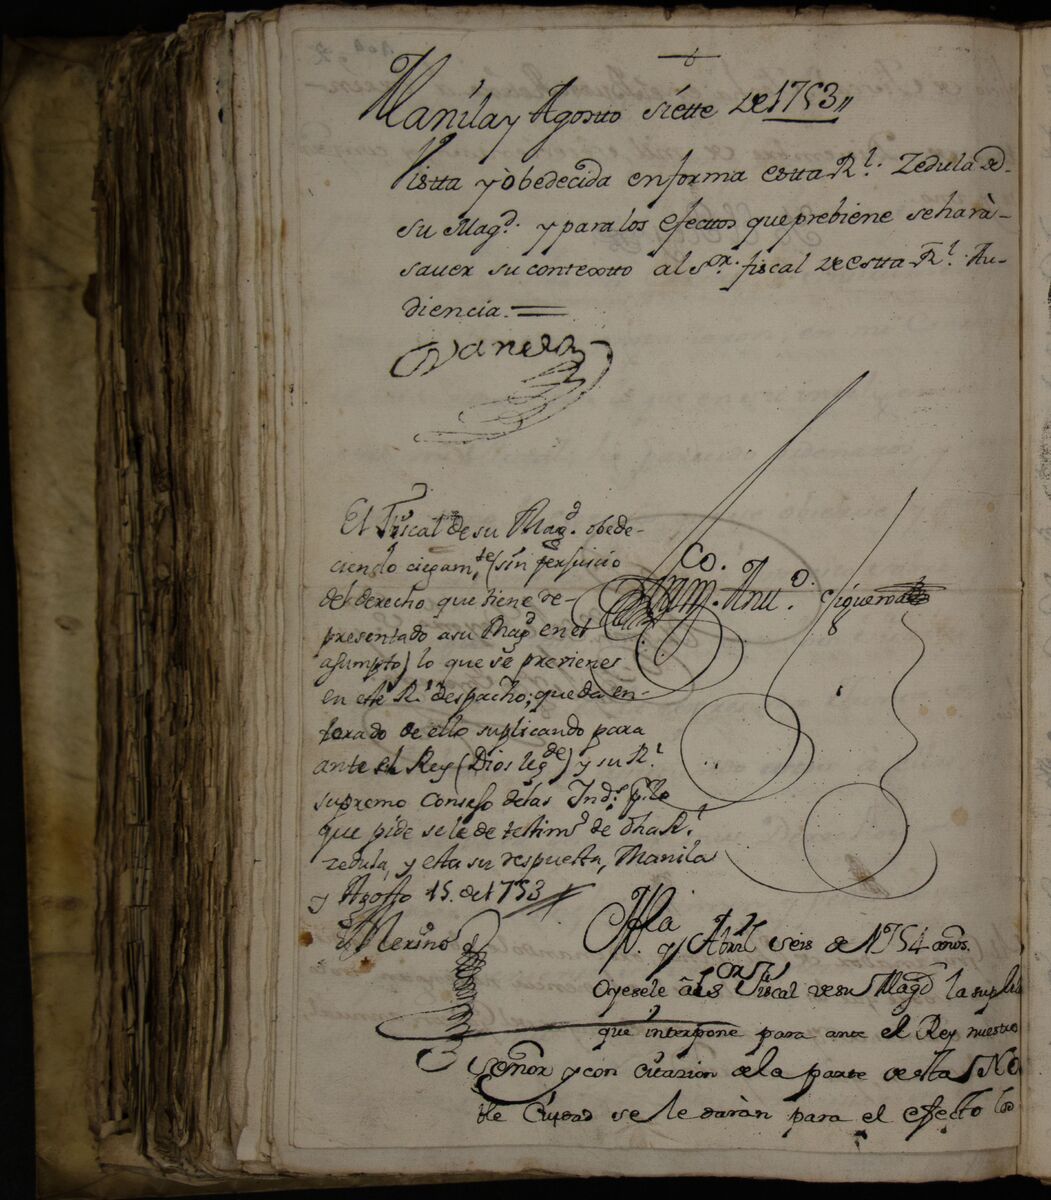 Manila y Agosto siette de 1753,,
Vistta y òbedecida en forma estta Rl. Zedula de
su Magd. y para los efectos que prebiene se harà
saver su contextto al Sor. fiscal de estta Rl. Au-
diencia.
Ovando
El Fiscal de su Magd. obede-
ciendo ciegamte (sin perjuicio
del derecho que tiene re-
presentado a su Magd en el
asumpto) lo que se previene
en este Rl. despacho; queda en-
terado de ello suplicando para
ante el Rey (Dios le gde) y su Rl.
supremo Consejo de las Inds. p. lo
que pide se le de testimo. de dha Rl.
zedula, y esta su respuesta, Manila
y Agosto 15. de 1753
Merino
Co. Anto. Figueroa
Mla y Abril seis de 1754 años.
Oyesele al Sor Fiscal de su Magd la suplica
que interpone para ante el Rey nuestro
Señor y con citazion de la parte de esta No
ble Ciudad se le daràn para el efecto los